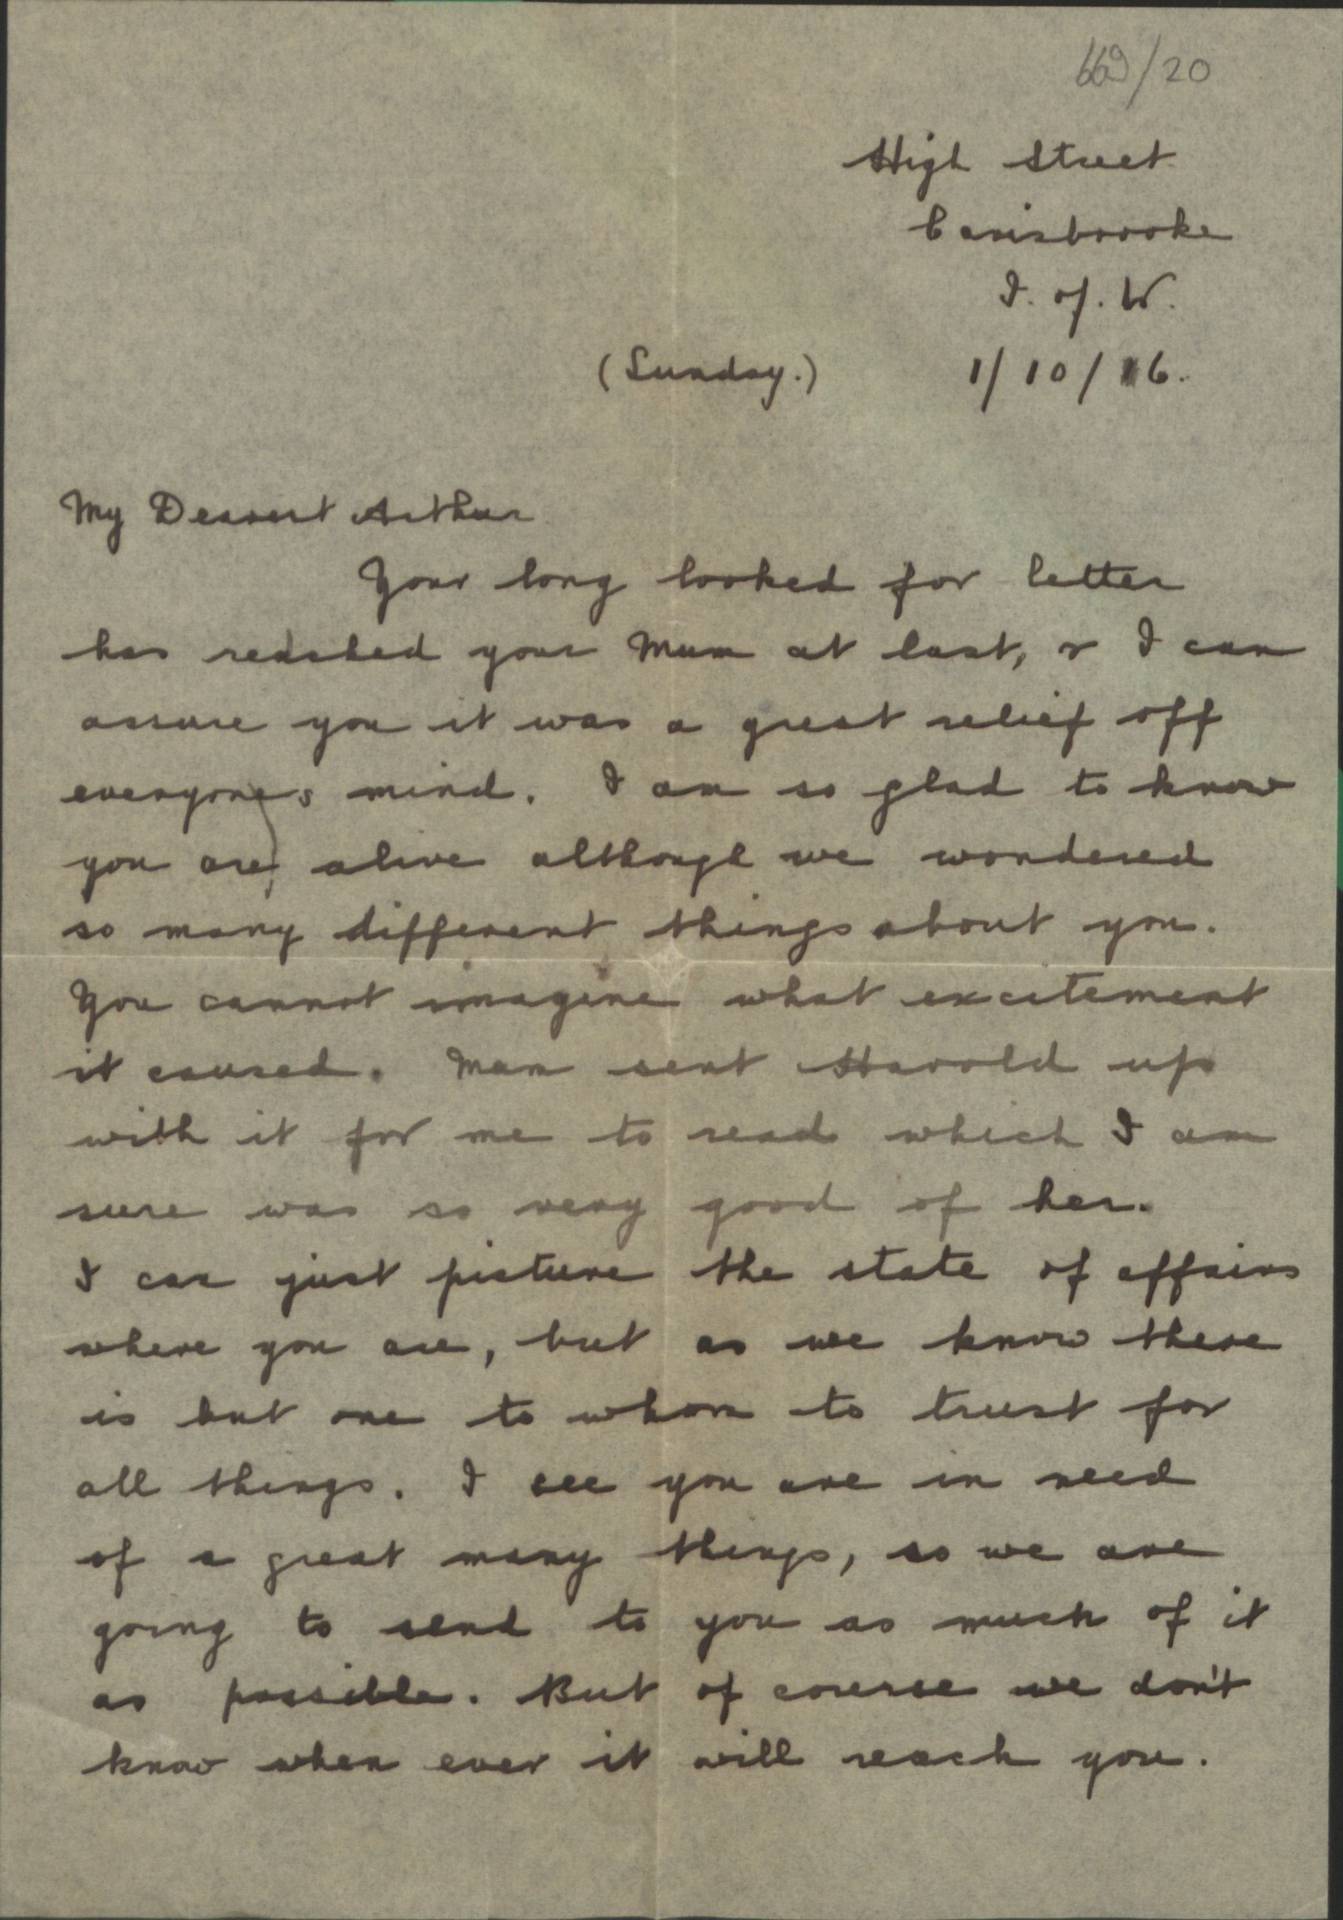 669/20
High Street
Carisbrooke
I. of. W.
(Sunday.) 1/10/16.
My Dearest Arthur
Your long looked for letter
has reached your Mum at last, & I can
assure you it was a great relief off
everyones mind. I am so glad to know
you are alive although we wondered
so many different things about you.
You cannot imagine what excitement
it caused. Mam sent Harold up
with it for me to read which I am
sure was so very good of her.
I can just picture the state of affairs
where you are, but as we know there
is but one to whom to trust for
all things. I see you are in need
of a great many things, so we are
going to send to you as much of it
as possible. But of course we don't
know when ever it will reach you.